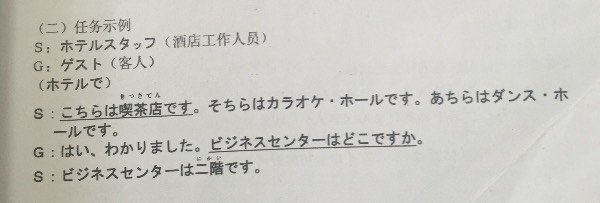 （二）任务示例
S：ホテルスタッフ（酒店工作人员）
G：ゲスト（客人）
（ホテルで）
きっさてん
S：こちらは喫茶店です。そちらはカラオケ・ホールです。あちらはダンス・ホ
ールです。
G：はい、わかりました。ビジネスセンターはどこですか。
にかい
S：ビジネスセンターは二階です。